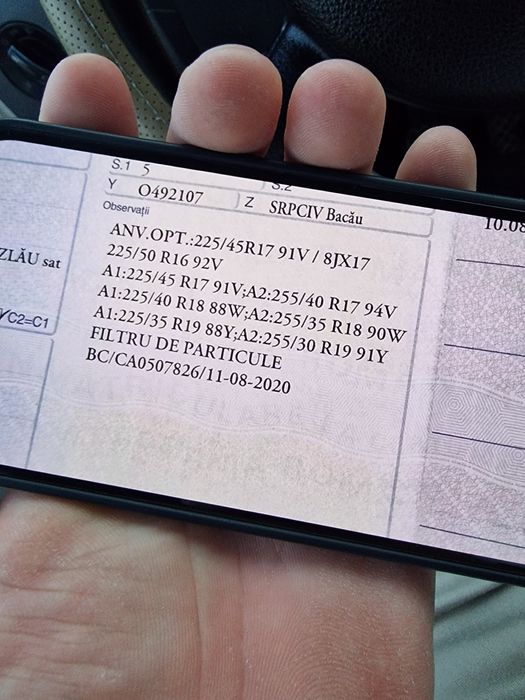 S.1 5
S.2
Y O492107
Z SRPCIV Bacău
Observații
10.08
ANV.OPT.:225/45R17 91V / 8JX17
225/50 R16 92V
ZLĂU sat
A1:225/45 R17 91V;A2:255/40 R17 94V
A1:225/40 R18 88W;A2:255/35 R18 90W
C2=C1
A1:225/35 R19 88Y;A2:255/30 R19 91Y
FILTRU DE PARTICULE
BC/CA0507826/11-08-2020